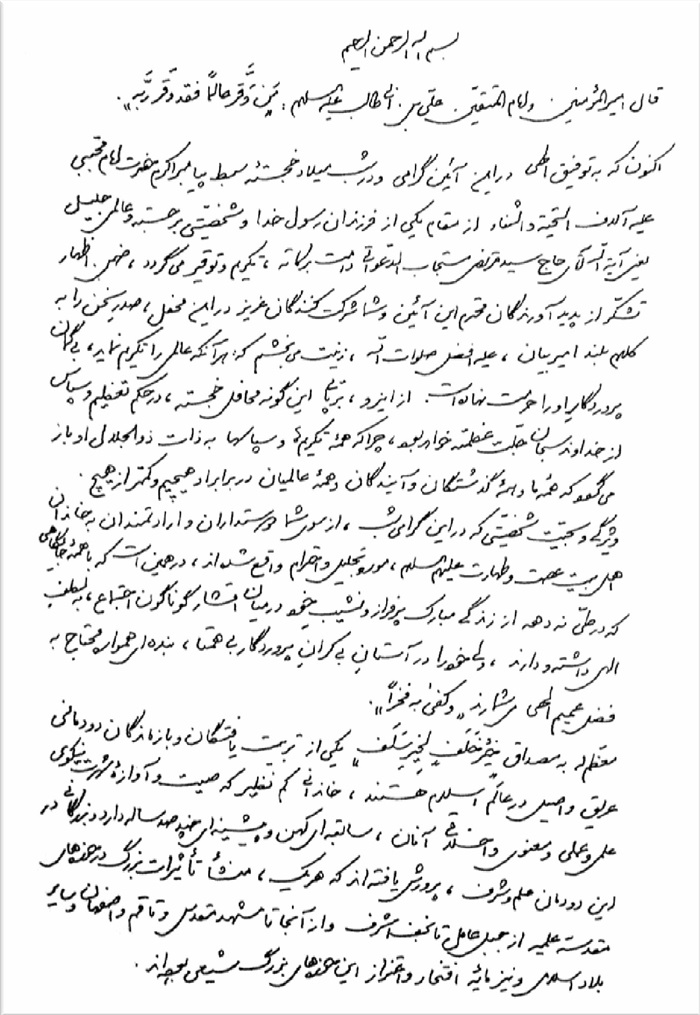 بسم الله الرحمن الرحیم
قال امیرالمؤمنین وامام المتقین علی بن ابی طالب علیه السلام: «مَن وَقَّرَ عالِمًا فقد وَقَّرَ رَبَّه».
اکنون که به توفیق الهی در این آئین گرامی و در شب میلاد خجستهٔ سبط پیامبر اکرم حضرت امام مجتبی
علیه آلاف التحیة والثناء از مقام یکی از فرزندان رسول خدا و شخصیتی برجسته و عالمی جلیل
یعنی آیة الله آقای حاج سید مرتضی مستجاب الدعواتی دامت برکاته، تکریم و توقیر می گردد، ضمن اظهار
تشکر از پدید آورندگان محترم این آئین و شما شرکت کنندگان عزیز در این محفل، صدر سخن را به
کلام بلند امیر بیان، علیه افضل صلوات الله، زینت می بخشم که: هر آنکه عالمی را تکریم نماید، بی گمان
پروردگار را حرمت نهاده است. از اینرو، برپائی این گونه محافل خجسته، در حکم تعظیم و سپاس
از خداوند سبحان جلّت عظمته خواهد بود، چرا که همهٔ تکریم ها و سپاسها به ذات ذوالجلال او باز
می گردد که همهٔ ما و همهٔ گذشتگان و آیندگان و همهٔ عالمیان در برابر او هیچیم و کمتر از هیچ.
ویژگی و شخصیتی که در این گرامی شب، از سوی شما دوستداران و ارادتمندان به خاندان
اهل بیت عصمت و طهارت علیهم السلام، مورد تجلیل و احترام واقع شده اند، در همین است که با همهٔ جایگاهی
که در طیّ نه دهه از زندگی مبارک پرفراز و نشیب خود در میان اقشار گوناگون اجتماع، به لطف
الهی داشته و دارند، ولی خود را در آستان بی کران پروردگار بی همتا، بنده ای همواره محتاج به
فضل عمیم الهی می شمارند «وکفیٰ به فخراً».
معظم له به مصداق «خیرُ خَلَفٍ لِخیرِ سَلَف» یکی از تربیت یافتگان و بازماندگان دودمانی
عریق و اصیل در عالَم اسلام هستند، خاندانی کم نظیر که صیت و آوازهٔ شهرت نیکوی
علمی و عملی و معنوی و اخلاقی آنان، سابقه ای کهن و پیشینه ای چند صد ساله دارد و بزرگانی در
این دودمان علم و شرف، پرورش یافته اند که هر یک، منشأ تأثیرات بزرگ در حوزه های
مقدسه علمیه از جبل عامل تا نجف اشرف و از آنجا تا مشهد مقدس و تا قم و اصفهان و سایر
بلاد اسلامی و نیز مایهٔ افتخار و اعتزاز این حوزه های بزرگ شیعی بوده اند.